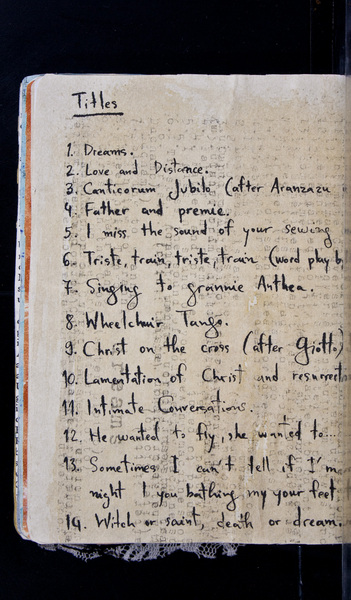 Titles
1. Dreams.
2. Love and Distance.
3. Canticorum Jubilo (after Aranzazu
4. Father and premie.
5. I miss the sound of your sewing
6. Triste, train, triste, train (word play b
7. Singing to grannie Anthea.
8. Wheelchair Tango.
9. Christ on the cross (after Giotto)
10. Lamentation of Christ and resurrecti
11. Intimate Conversations.
12. He wanted to fly, she wanted to...
13. Sometimes I can't tell if I'm
night I you bathing my your feet.
14. Witch or saint, death or dream.